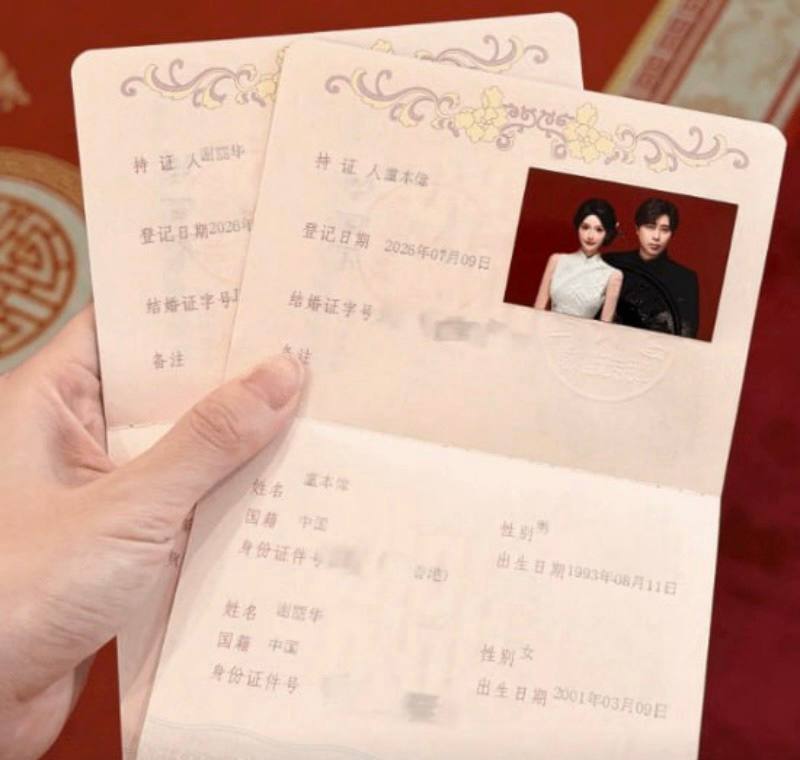 持 证 人
登记日期2026年
结婚证字号
备注
持 证 人 董本
登记日期 2026年07月09日
结婚证字号
备注
姓名 董本
国籍 中国
性别 男
身份证件号 香港)
出生日期 1993年08月11日
姓名 谢 华
国籍 中国
性别 女
身份证件号
出生日期 2001年03月09日